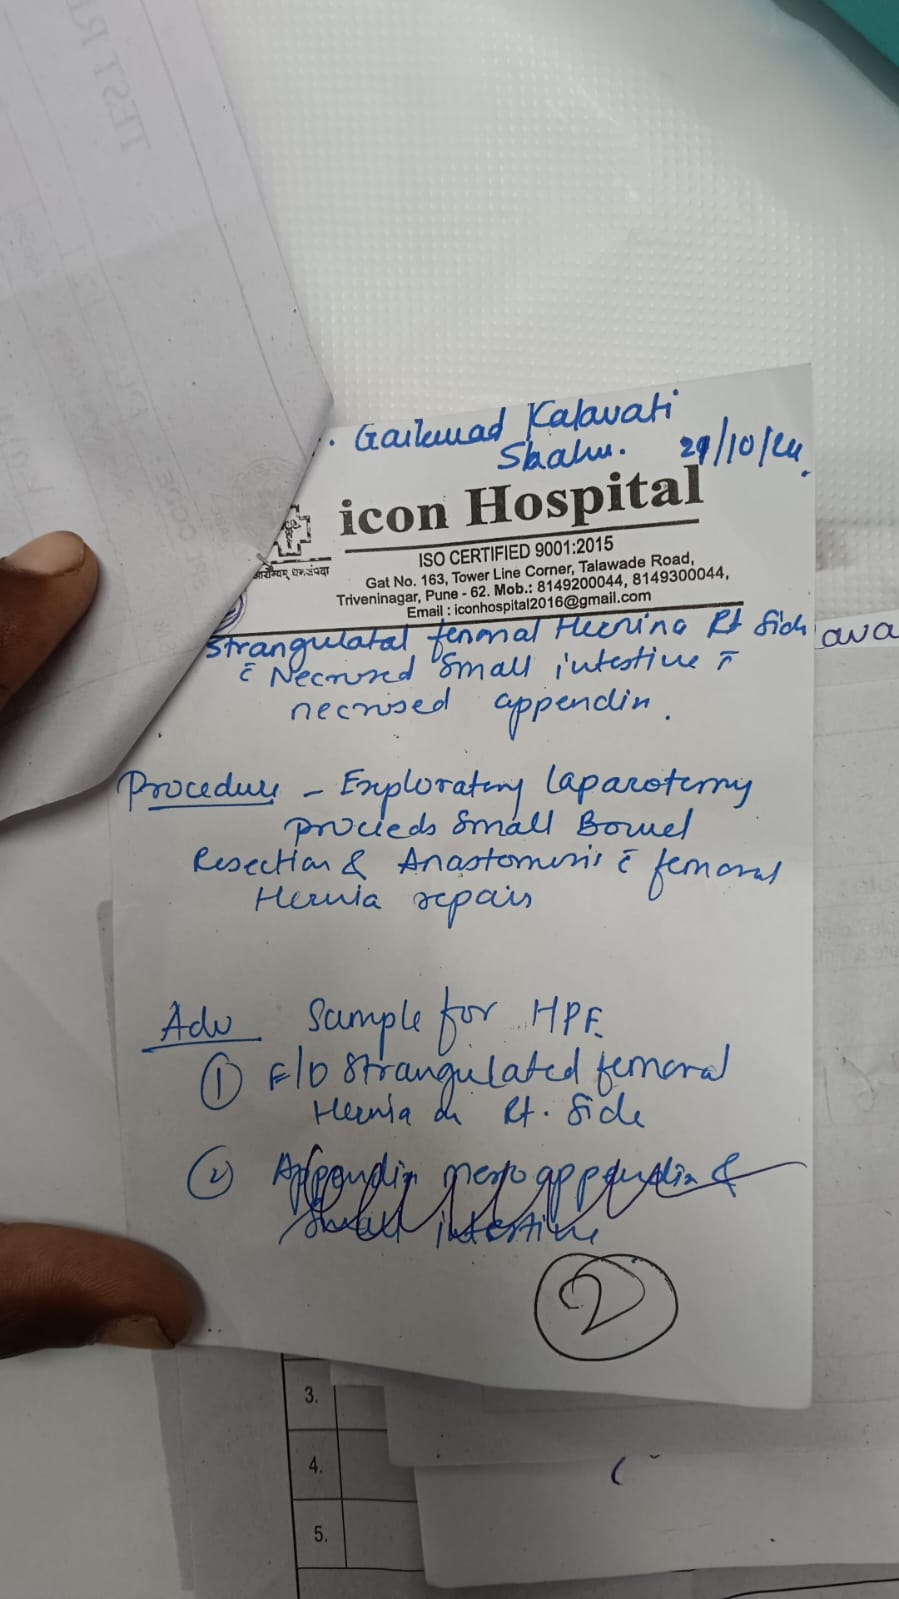 Gaikwad Kalavati
Shahu. 29/10/24
icon Hospital
ISO CERTIFIED 9001:2015
आरोग्यम् धनसंपदा
Gat No. 163, Tower Line Corner, Talawade Road,
Triveninagar, Pune - 62. Mob.: 8149200044, 8149300044,
Email : iconhospital2016@gmail.com
Strangulatal femoral Herrina Rt Side
c̄ Necrosed Small intestine c̄
necrosed appendix.
Procedure - Exploratory laparotomy
procieds Small Bowel
Resection & Anastomosis c̄ femoral
Hernia repair
Adv Sample for HPE
① F/O Strangulated femoral
Hernia on Rt. Side
② Appendix mesoappendix &
Small intestine
2
ava
3.
4.
5.